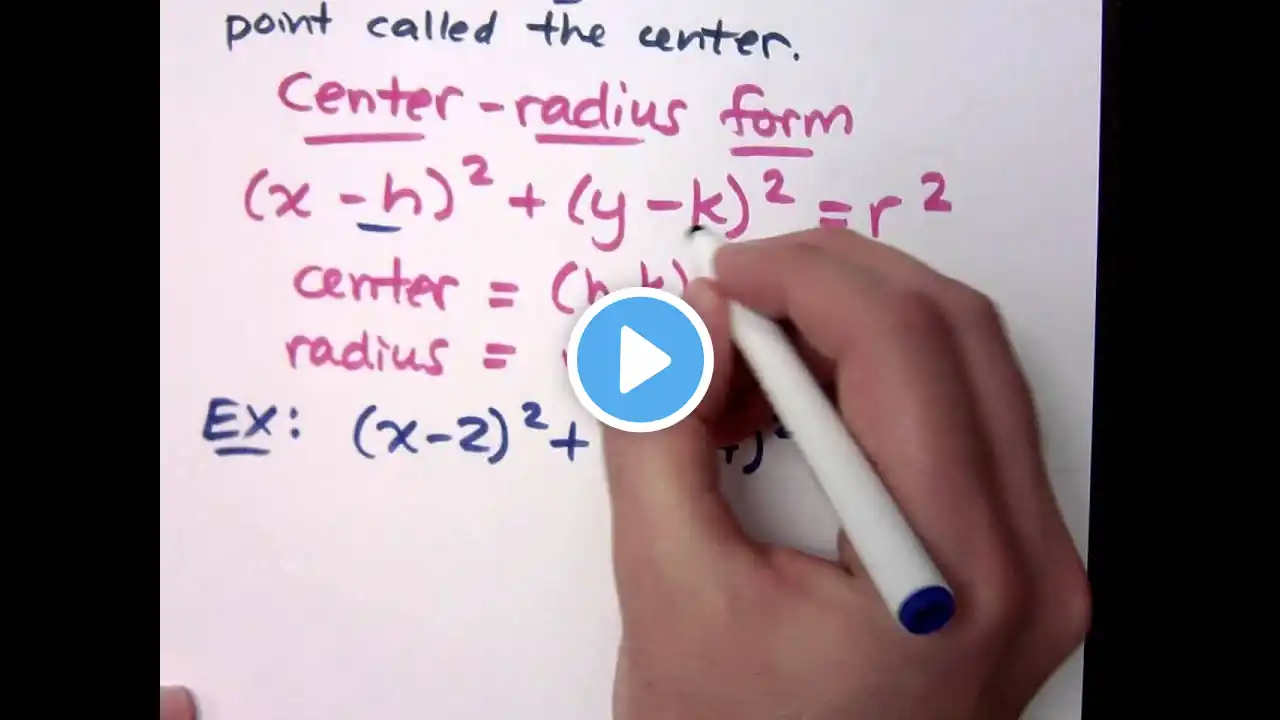 point called the center.
Center-radius form
(x - h)² + (y - k)² = r²
center = (h,k)
radius =
EX: (x-2)² +